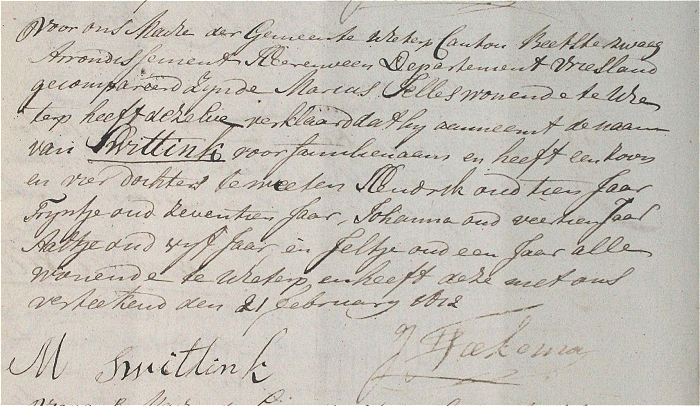 Voor ons Maire der Gemeente Wieterp Canton Beetsterzwaag
Arrondissement Heerenveen Departement Vriesland
gecompareerd zynde Marcus Jelles wonende te Wie
terp heeft dezelve verklaard dat hy aanneemt de naam
van Swittink voor familienaam en heeft een zoon
en vier dochters te weeten Hendrik oud tien Jaar
Tryntje oud zeventien Jaar, Johanna oud veertien Jaar
Aaltje oud vyf Jaar en Jeltje oud een Jaar alle
wonende te Wieterp en heeft deze met ons
verteekend den 21 february 1812
M Swittink